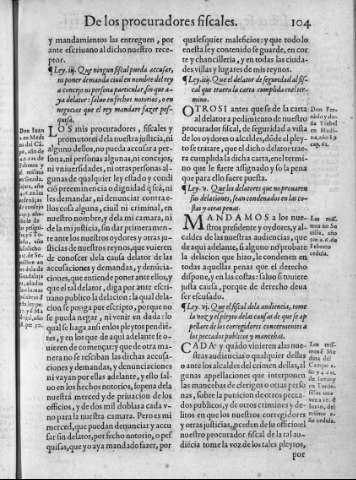 De los procuradores fiscales. 104
y mandamientos las entreguen, por
ante escriuano al dicho nuestro rece-
ptor.
¶ Ley .iij. Que ningun fiscal pueda accusar,
ni poner demanda ciuil en nombre del rey
a persona particular, sin que a-
ya delator: saluo en fechos notorios, o en
negocio que el rey mandare fazer pes-
quisa.
LOS mis procuradores, fiscales y
promutores dela nuestra justicia, ni
alguno dellos, no pueda accusar a per-
sona, ni personas algunas, ni concejos,
ni vniuersidades, ni otras personas al-
gunas de qualquier ley estado y condi-
cion preeminencia o dignidad q̃ sea, ni
les demandar, ni denunciar contra e-
llos cosa alguna, ciuil ni criminal, en
nuestro nombre, y dela mi camara, ni
de la mi justicia, sin dar primeramen-
te ante los nuestros oydores y otras ju-
sticias de nuestros reynos, que vuieren
de conoscer dela causa delator de las
accusaciones y demandas, y denuncia-
ciones, que entiende poner ante ellos, y
que el tal delator, diga por ante escri-
uano publico la delacion: la qual dela-
cion se ponga por escripto, porque no
se pueda negar, ni venir en duda: lo
qual se haga ansi enlos pleytos pendiẽ-
tes, y en los que de aqui adelante se o-
uieren de començar: y que de otra ma-
nera no se resciban las dichas accusa-
ciones y demandas, y denunciaciones
ni vayan por ellas adelante, y ello sal-
uo en los hechos notorios, sopena dela
nuestra merced y de priuacion de los
officios, y de dos mil doblas a cada v-
no para la nuestra camara. Pero es mi
merced, que puedan denunciar y accu
sar sin delator, por fecho notorio, o pes
quisas, que yo aya mandado fazer, por
qualesquier maleficios: y que todo lo
enesta ley contenido se guarde, en cor-
te y chancilleria, y en todas las ciuda-
des villas y lugares de mis reynos.
¶ Ley .iiij. Que el delator de seguridad al fis-
cal que traera la carta cumplida enel ter-
mino.
OTROSI antes que se de la carta
al delator a pedimiento de nuestro
procurador fiscal, de seguridad a vista
de los oydores o alcaldes, dõde el pley-
to se tratare, que el dicho delator trae-
ra cumplida la dicha carta, enel termi-
no que le fuere assignado y so la pena
que para ello fuere puesta.
¶ Ley .v. Que los delatores que no prouaren
sin delaciones, sean condenados en las co-
stas y otras penas.
MANDAMOS a los nue-
stros presidente y oydores, y al-
caldes de las nuestras audiencias, que
de aqui adelante, si alguno no prouare
la delacion que hizo, le condenen en
todas aquellas penas que el derecho
dispone, y en las costas: saluo si touiere
justa causa, porque de derecho deua
ser escusado.
¶ Ley .vj. Que el fiscal dela audiencia, tome
la voz y el pleyto delas causas de que se ap
pellare de los corregidores concernientes a
los peccados publicos y mancebas.
CADA y quãdo vinieren alas nue-
stras audiencias o qualquier dellas
o ante los alcaldes del crimen dellas, al
gunas appelaciones que interponen
las mancebas de clerigos o otras perso
nas, sobre la punicion de otros pecca-
dos publicos, y de otros crimines y de-
litos en que los nuestros corregidores
y otras justicias, proceden de su officio: el
nuestro procurador fiscal de la tal au-
diẽcia tome la voz de los tales pleytos,
por